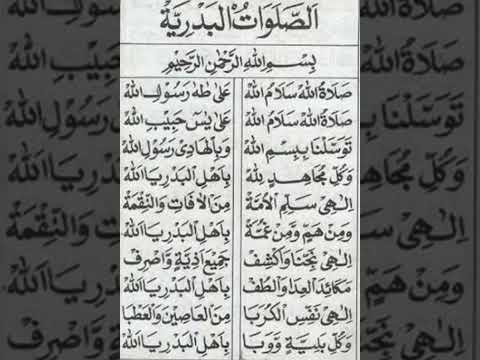 اَلصَّلَوَاتُ الْبَدْرِيَّةُ
بِسْمِ اللهِ الرَّحْمٰنِ الرَّحِيْمِ
صَلَاةُ اللهْ سَلَامُ اللهْ عَلَى طٰهَ رَسُوْلِ اللهْ
صَلَاةُ اللهْ سَلَامُ اللهْ عَلَى يٰسٓ حَبِيْبِ اللهْ
تَوَسَّلْنَا بِبِسْمِ اللهْ وَبِالْهَادِى رَسُوْلِ اللهْ
وَكُلِّ مُجَاهِدٍ لِلّٰهْ بِاَهْلِ الْبَدْرِ يَا اَللهْ
اِلٰهِى سَلِّمِ الْاُمَّةْ مِنَ الْاٰفَاتِ وَالنِّقْمَةْ
وَمِنْ هَمٍّ وَمِنْ غُمَّةْ بِاَهْلِ الْبَدْرِ يَا اَللهْ
اِلٰهِى نَجِّنَا وَاكْشِفْ جَمِيْعَ اَذِيَّةٍ وَاصْرِفْ
مَكَائِدَ الْعِدَا وَالْطُفْ بِاَهْلِ الْبَدْرِ يَا اَللهْ
اِلٰهِى نَفِّسِ الْكُرَبَا مِنَ الْعَاصِيْنَ وَالْعَطْبَا
وَكُلِّ بَلِيَّةٍ وَوَبَا بِاَهْلِ الْبَدْرِ يَا اَللهْ